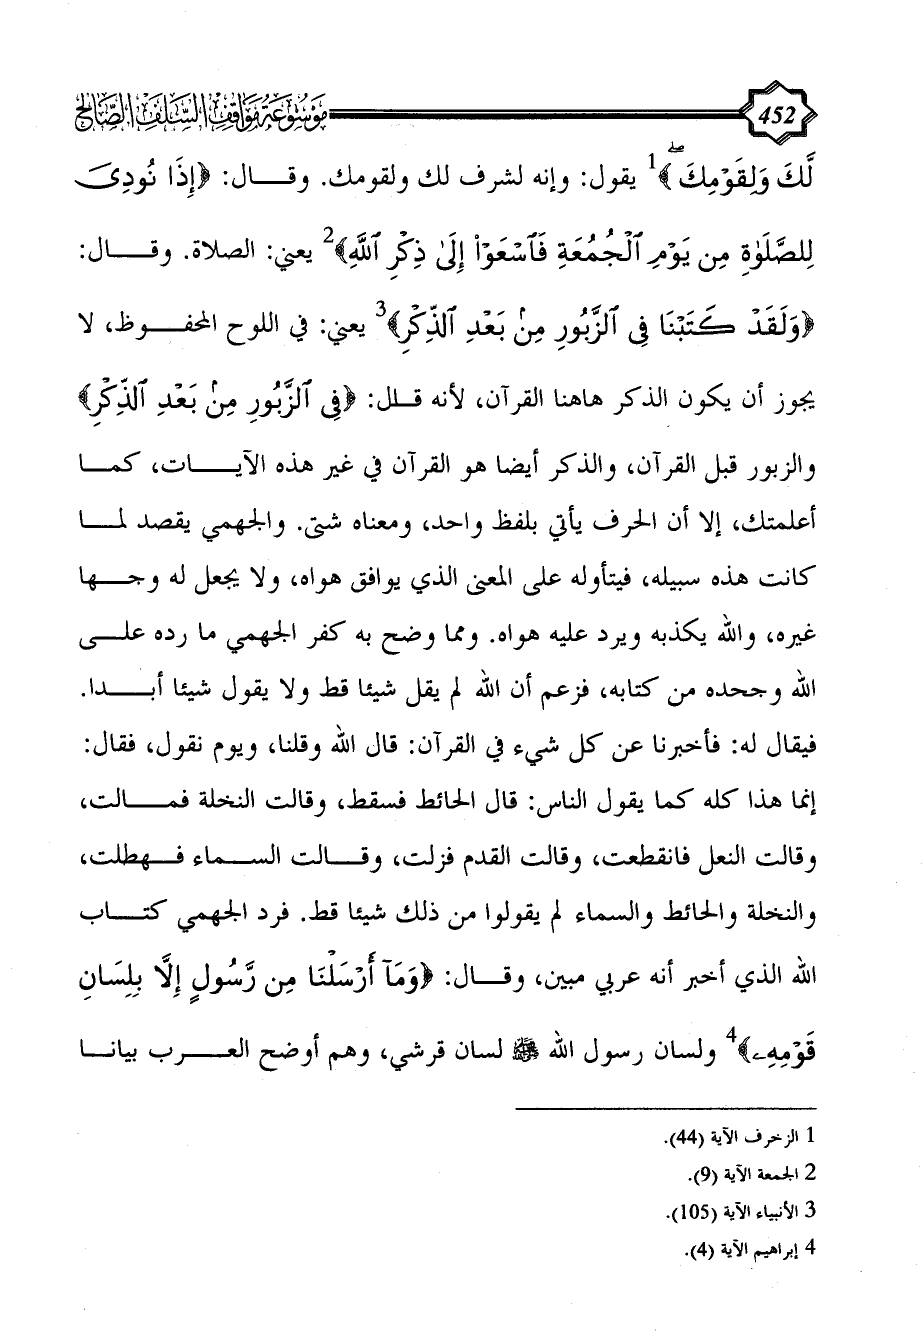 452 موسوعة مواقف السلف الصالح
لَّكَ وَلِقَوْمِكَ ۖ﴾1 يقول: وإنه لشرف لك ولقومك. وقـال: ﴿إِذَا نُودِيَ
لِلصَّلَوٰةِ مِن يَوْمِ ٱلْجُمُعَةِ فَٱسْعَوْا۟ إِلَىٰ ذِكْرِ ٱللَّهِ﴾2 يعني: الصلاة. وقـال:
﴿وَلَقَدْ كَتَبْنَا فِى ٱلزَّبُورِ مِنۢ بَعْدِ ٱلذِّكْرِ﴾3 يعني: في اللوح المحفـوظ، لا
يجوز أن يكون الذكر هاهنا القرآن، لأنه قـلل: ﴿فِى ٱلزَّبُورِ مِنۢ بَعْدِ ٱلذِّكْرِ﴾
والزبور قبل القرآن، والذكر أيضا هو القرآن في غير هذه الآيـات، كمـا
أعلمتك، إلا أن الحرف يأتي بلفظ واحد، ومعناه شتى. والجهمي يقصد لمـا
كانت هذه سبيله، فيتأوله على المعنى الذي يوافق هواه، ولا يجعل له وجـها
غيره، والله يكذبه ويرد عليه هواه. ومما وضح به كفر الجهمي ما رده علـى
الله وجحده من كتابه، فزعم أن الله لم يقل شيئا قط ولا يقول شيئا أبـدا.
فيقال له: فأخبرنا عن كل شيء في القرآن: قال الله وقلنا، ويوم نقول، فقال:
إنما هذا كله كما يقول الناس: قال الحائط فسقط، وقالت النخلة فمـالت،
وقالت النعل فانقطعت، وقالت القدم فزلت، وقـالت السـماء فـهطلت،
والنخلة والحائط والسماء لم يقولوا من ذلك شيئا قط. فرد الجهمي كتـاب
الله الذي أخبر أنه عربي مبين، وقـال: ﴿وَمَآ أَرْسَلْنَا مِن رَّسُولٍ إِلَّا بِلِسَانِ
قَوْمِهِۦ﴾4 ولسان رسول الله ﷺ لسان قرشي، وهم أوضح العـرب بيانـا
1 الزخرف الآية (44).
2 الجمعة الآية (9).
3 الأنبياء الآية (105).
4 إبراهيم الآية (4).